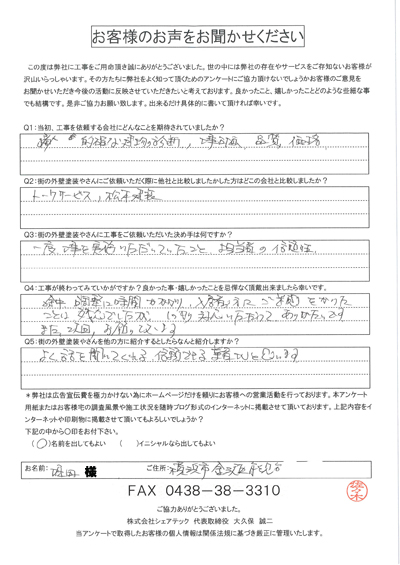 お客様のお声をお聞かせください
この度は弊社に工事をご用命頂き誠にありがとうございました。世の中には弊社の存在やサービスをご存知ないお客様が
沢山いらっしゃいます。その方たちに弊社をよく知って頂くためのアンケートにご協力頂けないでしょうかお客様のご意見を
お聞かせいただき今後の活動に反映させていただきたいと考えております。良かったこと、嬉しかったことどのような些細な事
でも結構です。是非ご協力お願い致します。出来るだけ具体的に書いて頂ければ幸いです。
Q1:当初、工事を依頼する会社にどんなことを期待されていましたか?
的確な建物診断、 品質、価格
Q2:街の外壁塗装やさんにご依頼いただく際に他社と比較しましたかした方はどこの会社と比較しましたか?
トータルサービス,
Q3:街の外壁塗装やさんに工事をご依頼いただいた決め手は何ですか?
一度工事を見積いただいていたこと、担当者の信頼性
Q4:工事が終わってみていかがですか?良かった事・嬉しかったことを忌憚なく頂戴出来ましたら幸いです。
途中 調整に時間がかかり、 ご迷惑をかけた
ことは 対応いただいて ありがたいです
また、次回、お願いします
Q5:街の外壁塗装やさんを他の方に紹介するとしたらなんと紹介しますか?
よく話を聞いてくれる、信頼できる業者だと思います
*弊社は広告宣伝費を極力かけない為にホームページだけを頼りにお客様への営業活動を行っております。本アンケート
用紙またはお客様宅の調査風景や施工状況を随時ブログ形式のインターネットに掲載させて頂いております。上記内容をイ
ンターネットや印刷物に掲載させて頂いてもよろしいでしょうか?
下記の中から○印をお付下さい。
(○)名前を出してもよい ( )イニシャルなら出してもよい
お名前: 様 ご住所: 横浜市金沢区
FAX 0438-38-3310
ご協力ありがとうございました。
株式会社シェアテック 代表取締役 大久保 誠二
当アンケートで取得したお客様の個人情報は関係法規に基づき厳正に管理いたします。